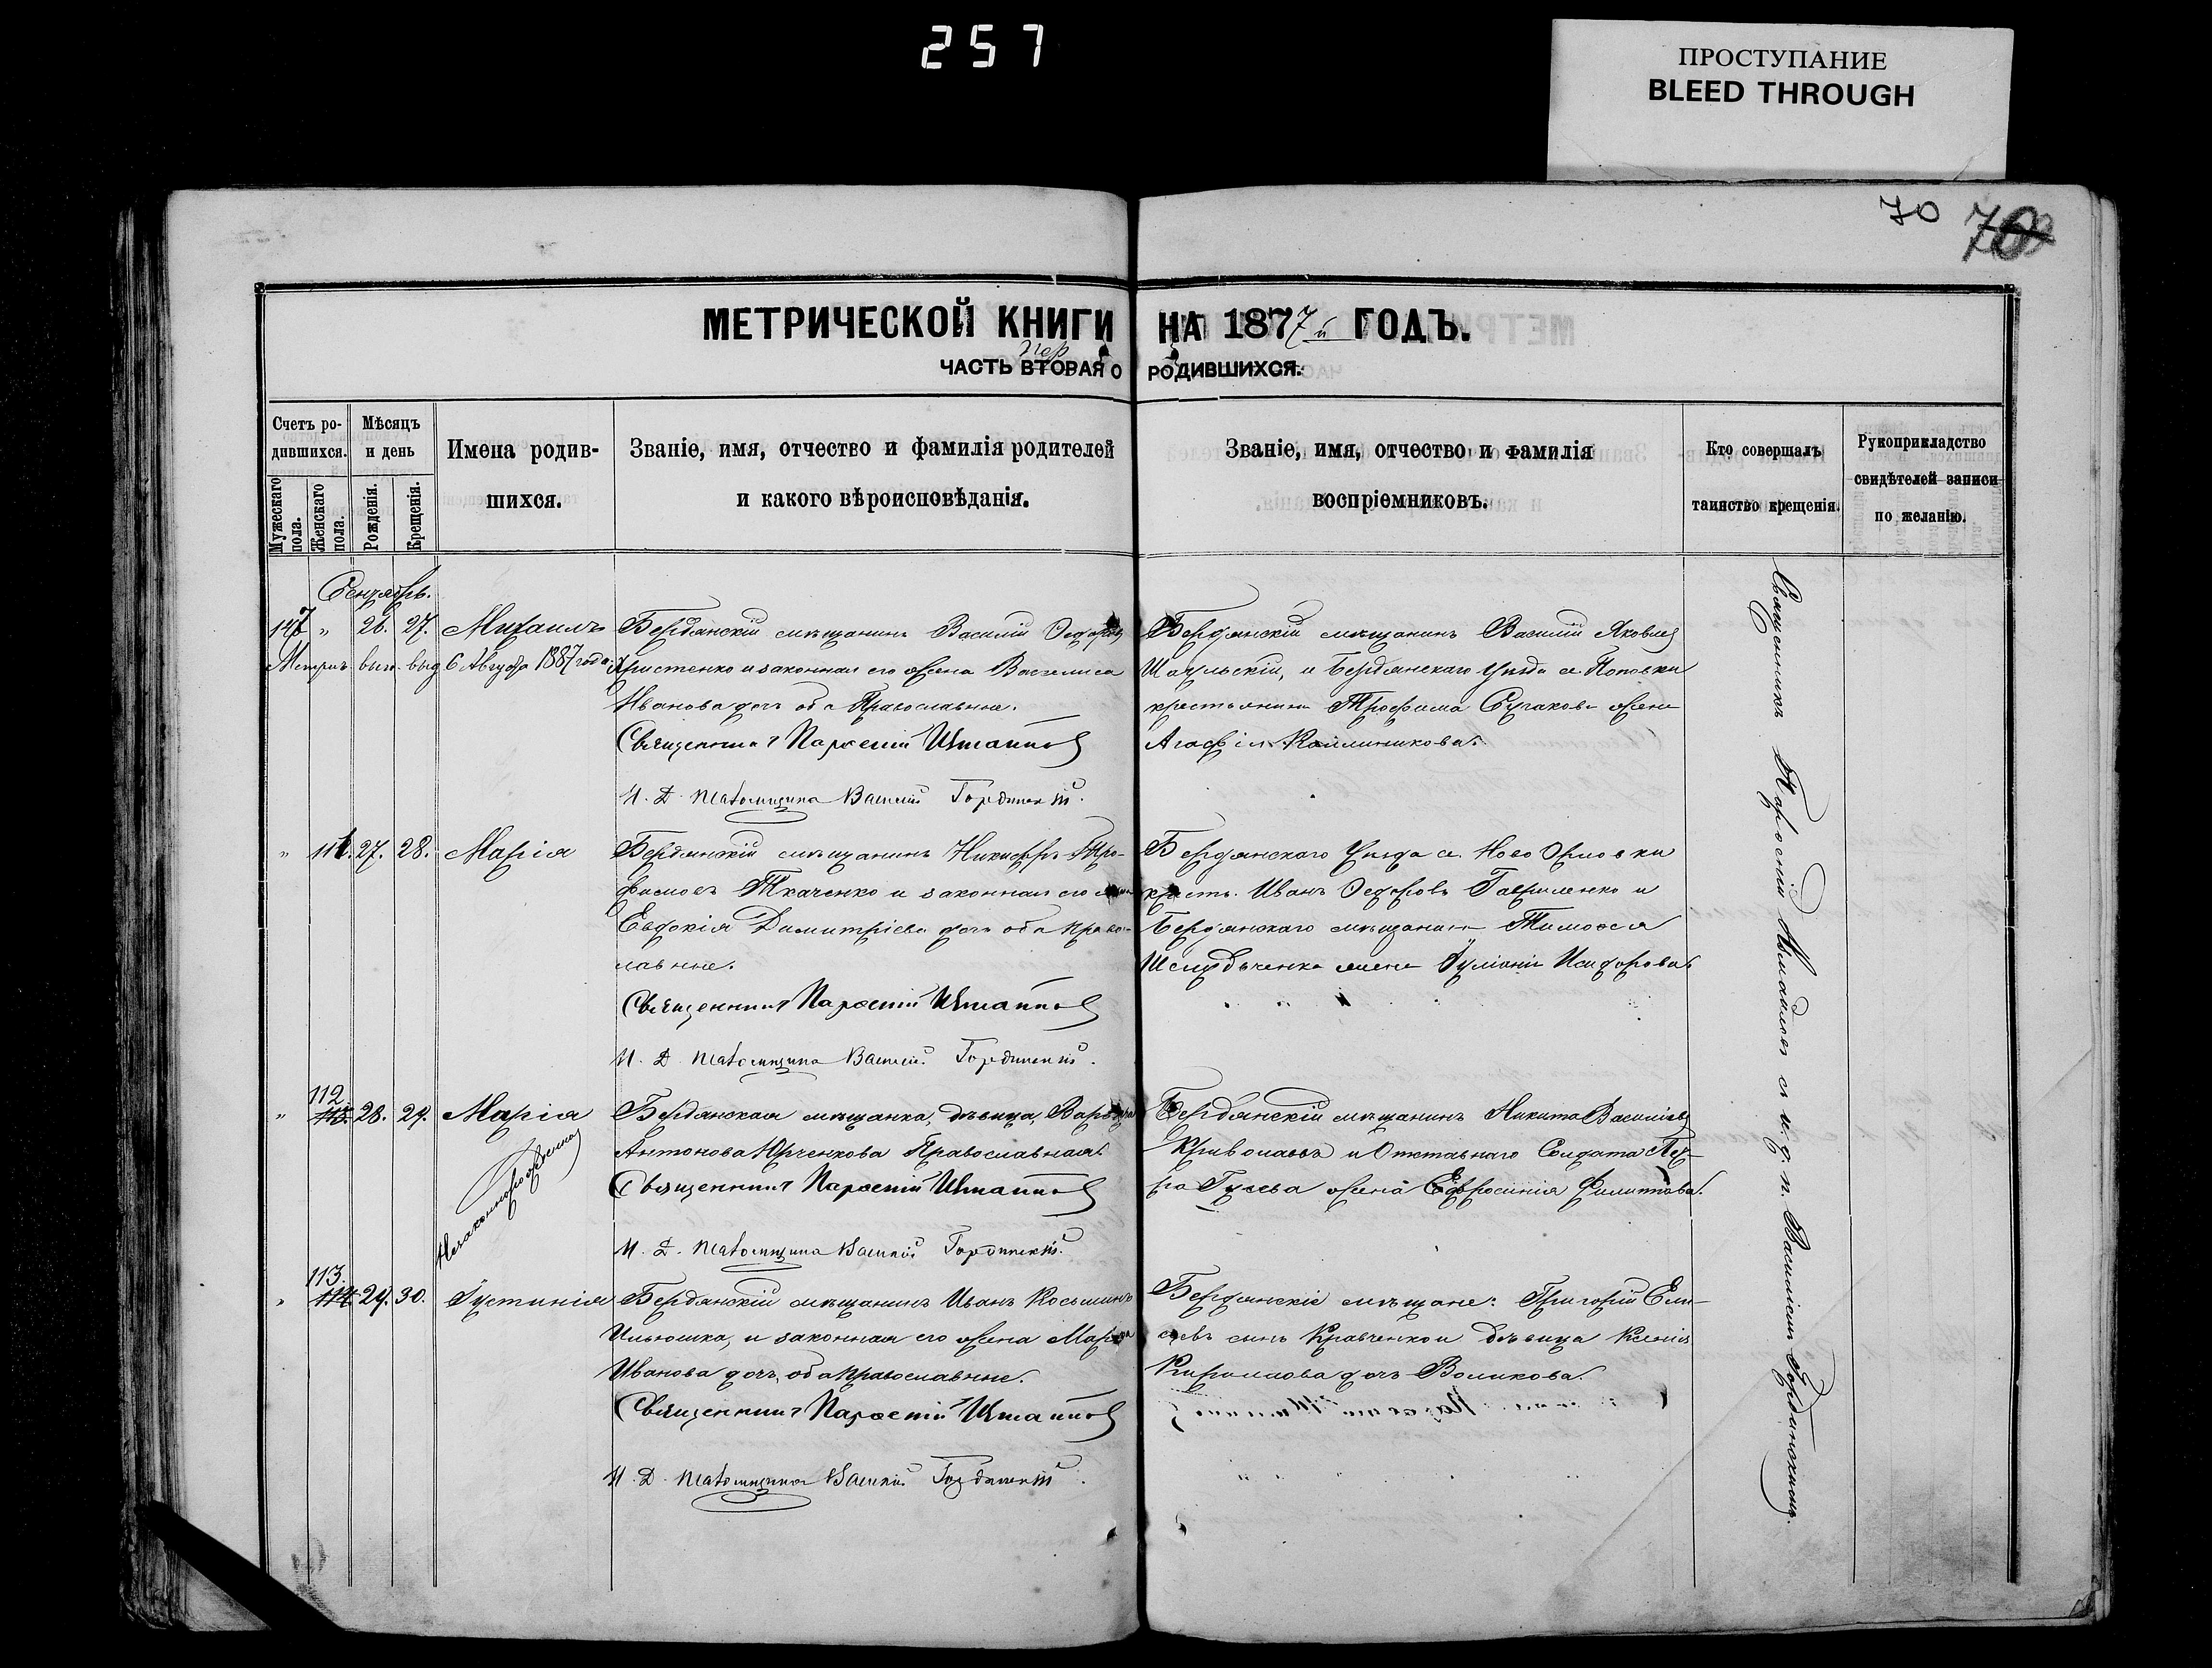 257
ПРОСТУПАНИЕ
BLEED THROUGH
70 70
МЕТРИЧЕСКОЙ КНИГИ НА 1877й ГОДЪ.
пер
ЧАСТЬ ВТОРАЯ О РОДИВШИХСЯ.
Счетъ ро-
дившихся.
Мужескаго пола.
Женскаго пола.
Мѣсяцъ
и день
Рожденія.
Крещенія.
Имена родив-
шихся.
Званіе, имя, отчество и фамилія родителей
и какого вѣроисповѣданія.
Званіе, имя, отчество и фамилія
воспріемниковъ.
Кто совершалъ
таинство крещенія.
Рукоприкладство
свидѣтелей записи
по желанію.
Сентябрь.
147 " 26. 27. Михаилъ
6 Августа 1887 года
Бердянскій мѣщанинъ Василій Федоровъ
Христенко и законная его жена Василиса
Иванова дочь оба Православные.
Священникъ Парѳеній
И. Д. псаломщика Василій Гординскій.
Бердянскій мѣщанинъ Василій Яковлевъ
и Бердянскаго Уѣзда с. Поповки
крестьянина Трофима жена
Агафія
" 111. 27. 28. Марія
Бердянскій мѣщанинъ Никифоръ Тро-
фимовъ Ткаченко и законная его жена
Евдокія Димитріева дочь оба право-
славные.
Священникъ Парѳеній
И. Д. псаломщика Василій Гординскій.
Бердянскаго Уѣзда с. Ново
крест. Иванъ Федоровъ Гавриленко и
Бердянскаго мѣщанина Тимофея
жена Іуліанія Исидорова
" 112. 28. 29. Марія
Незаконнорожденная
Бердянская мѣщанка, дѣвица, Варвара
Антонова Юрченкова Православная.
Священникъ Парѳеній
И. Д. псаломщика Василій Гординскій.
Бердянскій мѣщанинъ Никита Васильевъ
и Отставнаго Солдата Пет-
ра Гусева жена Евфросинія Филиппова.
" 113. 29. 30. Іустинія
Бердянскій мѣщанинъ Иванъ Косьминъ
Ильюшка, и законная его жена Марѳа
Иванова дочь, оба православные.
Священникъ Парѳеній
И. Д. псаломщика Василій Гординскій.
Бердянскіе мѣщане: Григорій Ели-
сеевъ сынъ Кравченко и дѣвица Ксенія
дочь Воликова.
Священникъ Парѳеній съ и. д. п. Василіемъ Гординскимъ.